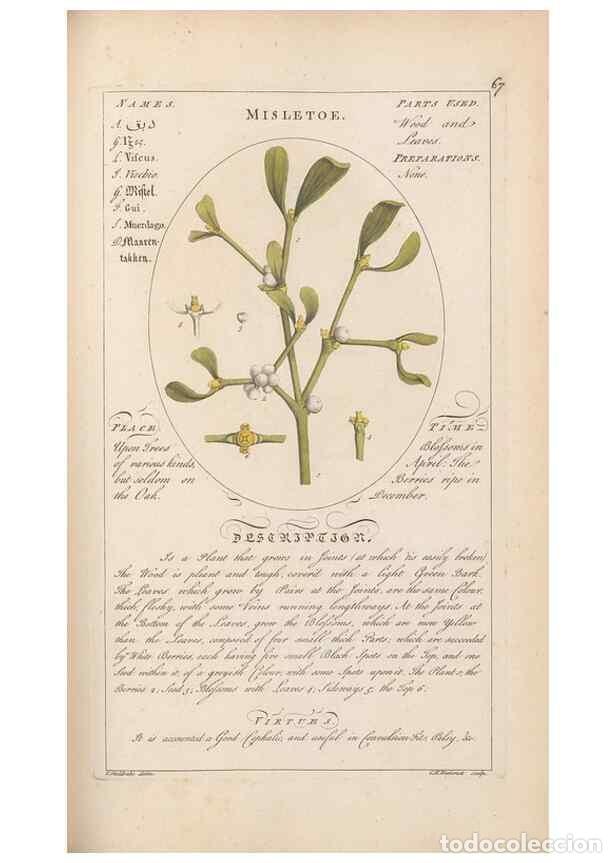 67
MISLETOE.
NAMES.
A. دبق
G. Ἰξος
L. Viscus.
I. Vischio.
G. Mistel.
F. Gui.
S. Muerdago.
D. Maaren-
takken.
PARTS USED.
Wood and
Leaves.
PREPARATIONS.
None.
PLACE
Upon Trees
of various kinds,
but seldom on
the Oak.
TIME
Blossoms in
April: The
Berries ripe in
December.
DESCRIPTION.
Is a Plant that grows in Joints (at which 'tis easily broken)
The Wood is pleant and tough, cover'd with a light Green Bark.
The Leaves which grow by Pairs at the Joints, are the same Colour,
thick, fleshy, with some Veins running lengthways. At the Joints at
the Bottom of the Leaves, grow the Blossoms, which are more Yellow
than the Leaves, composed of four small thick Parts; which are succeeded
by White Berries, each having five small Black Spots on the Top, and one
Seed within it, of a greyish Colour, with some Spots upon it. The Plant 1; the
Berries 2; Seed 3; Blossoms with Leaves 4; Sideways 5; the Top 6.
VIRTUES.
It is accounted a Good Cephalic, and useful in Convulsion Fits, Palsy, &c.
delin.
sculp.
todocoleccion